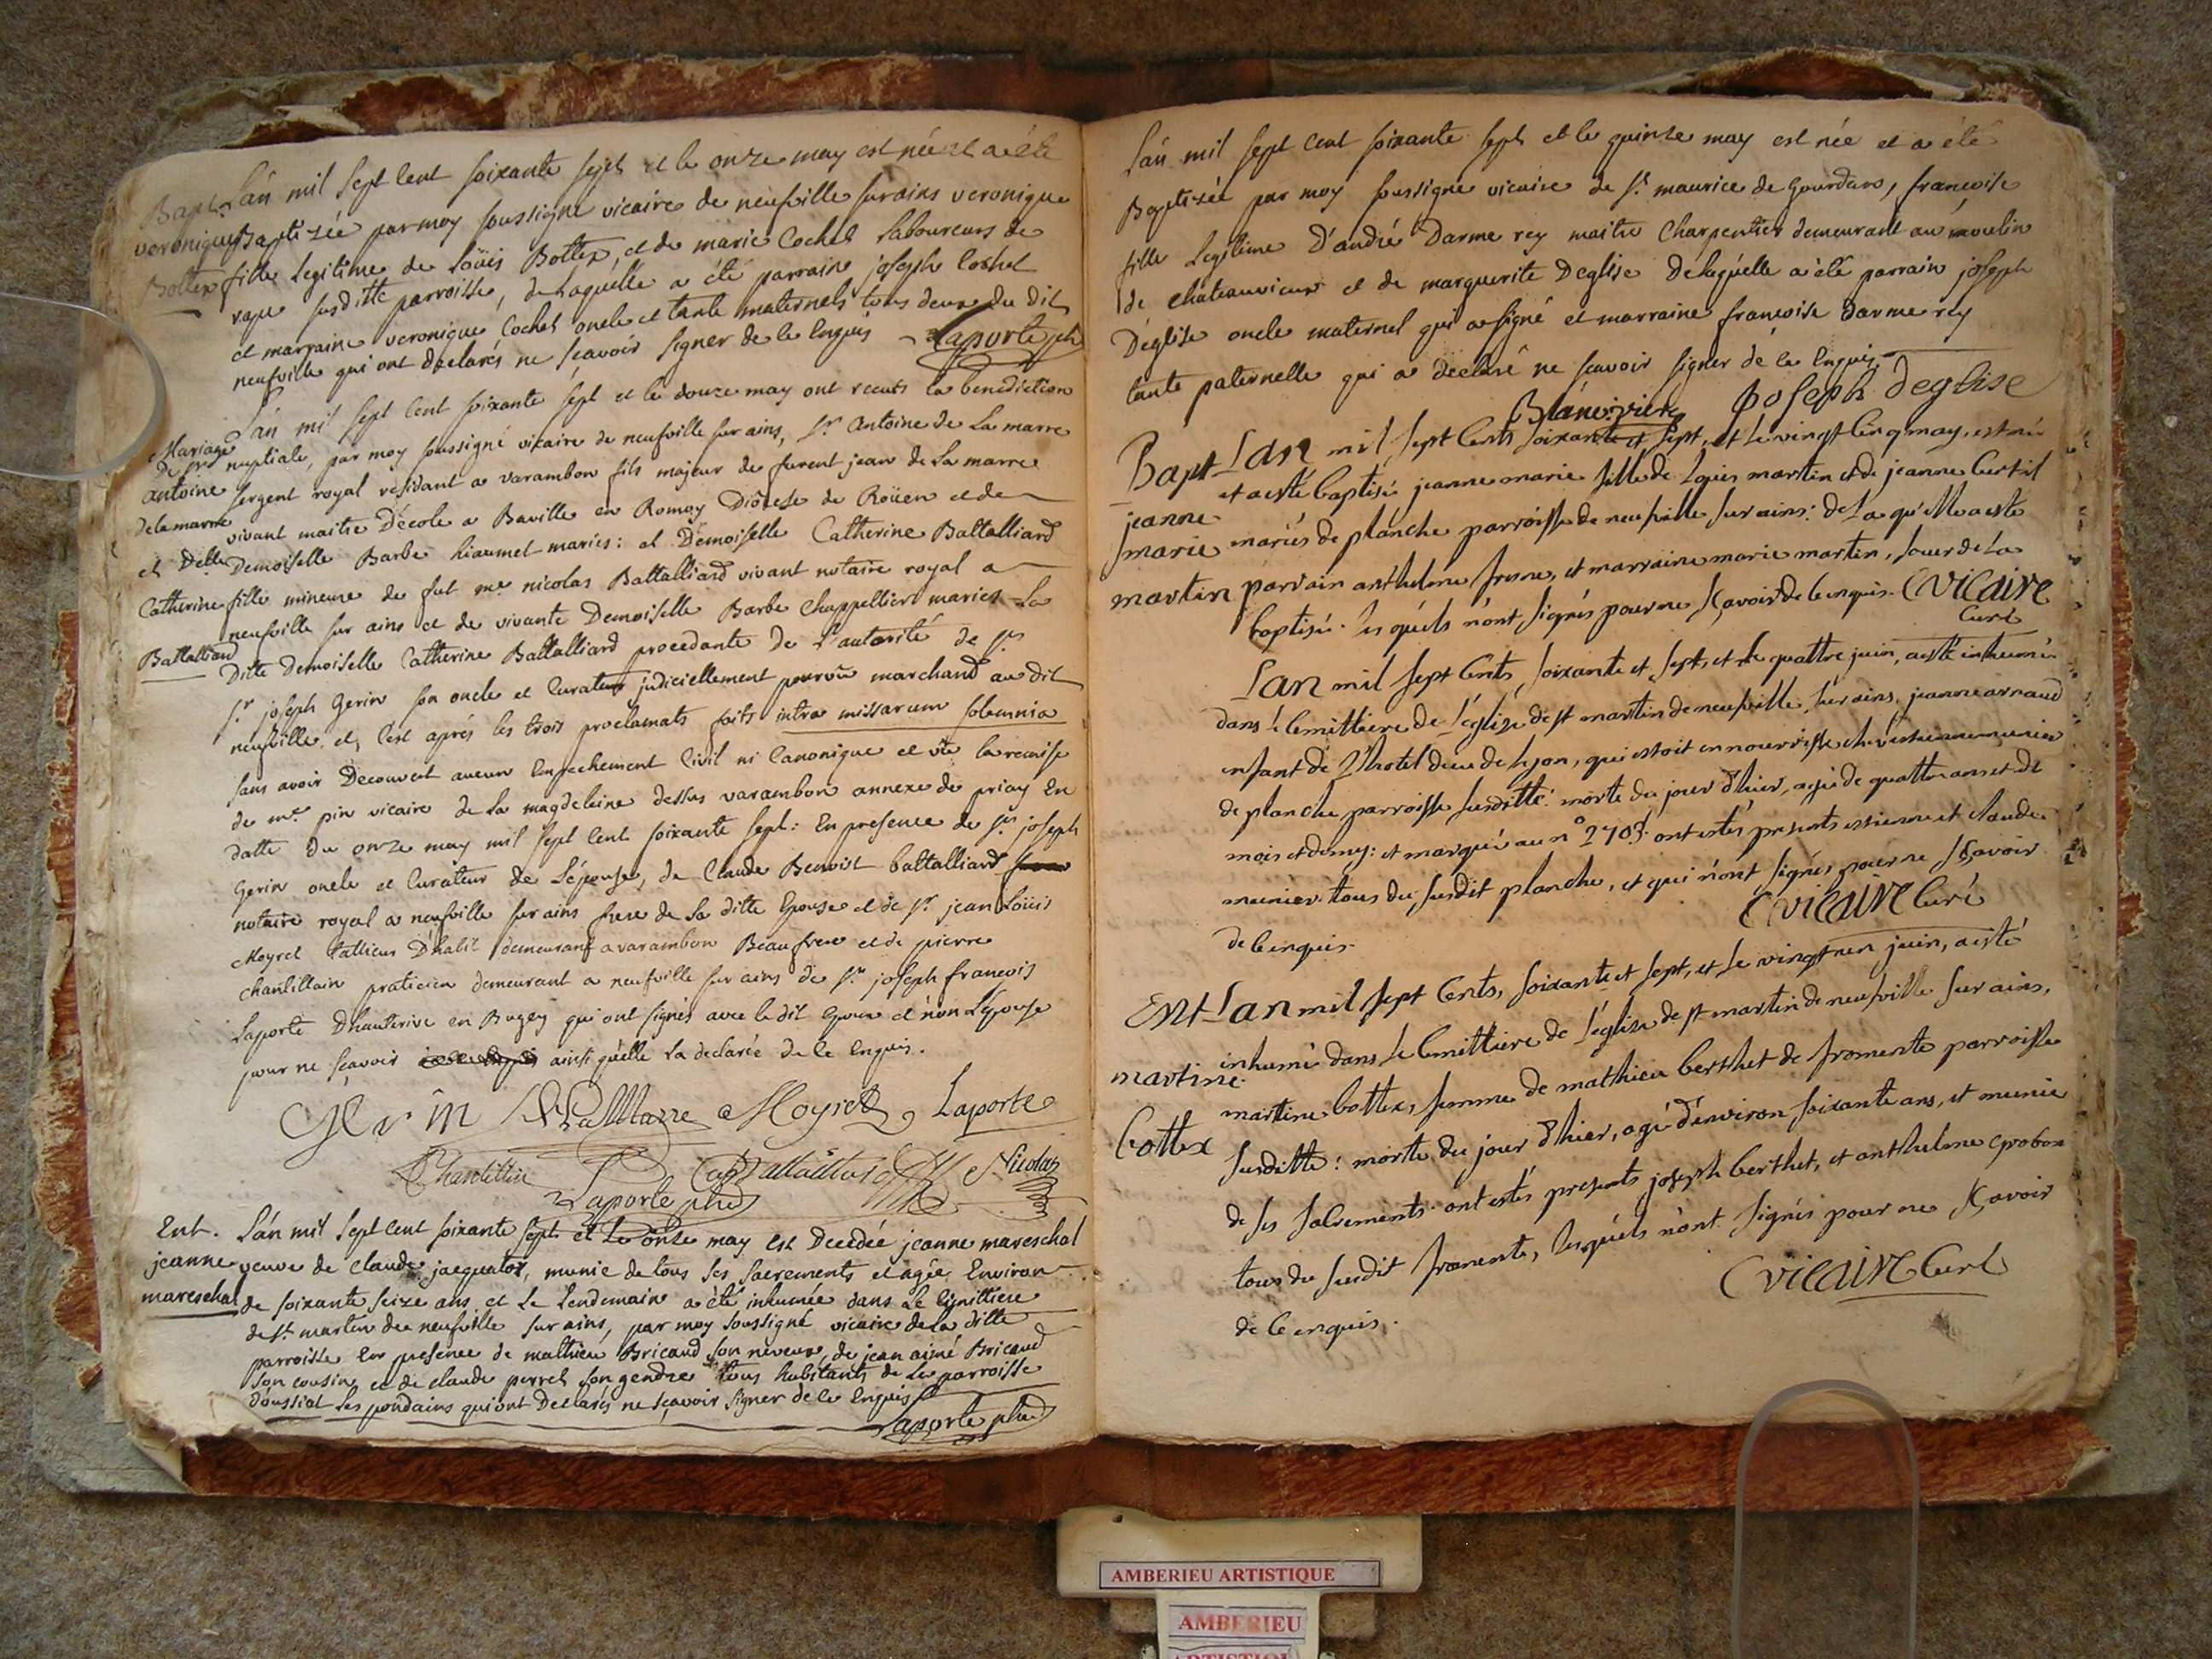 Bapt. L'an mil sept cent soixante sept et le onze may est née et a été
veronique Baptisée par moy soussigné vicaire de neufville sur ains veronique
Bottex fille legitime de Loüis Bottex, et de marie Cochet Laboureurs de
susditte parroisse, de laquelle a été parrain joseph Cochet
et marraine veronique Cochet oncle et tante maternels tous deux du dit
neufville qui ont declarés ne sçavoir signer de ce Enquis Laporte
L'an mil sept cent soixante sept et le douze may ont receuts la benediction
Mariage nuptiale, par moy soussigné vicaire de neufville sur ains, Sr antoine de La marre
de Sr
antoine sergent royal residant a varambon fils majeur de furent jean de La marre
delamarre vivant maitre D'école a Baville en Romoy Diocese de Roüen et de
et Delle Demoiselle Barbe hiaumet mariés: et Demoiselle Catherine Battalliard
Catherine fille mineure de fut me nicolas Battalliard vivant notaire royal a
neufville sur ains et de vivante Demoiselle Barbe Chappellier mariés La
Battalliard Ditte Demoiselle Catherine Battalliard procedante de L'autorité de
Sr joseph Gerin son oncle et Curateur judiciellement pourvû marchand au dit
neufville et, c'est aprés les trois proclamats faits intra missarum solemnia
sans avoir Decouvert aucun Empechement Civil ni Canonique et vû la remise
de me pin vicaire de La magdeleine dessus varambon annexe de priay En
datte du onze may mil sept cent soixante sept: En presence de Sr joseph
Gerin oncle et Curateur de L'épouse, de Claude Benoist battalliard
notaire royal a neufville sur ains frere de La ditte Epouse et de Sr jean Loüis
Moyret Tallieur D'habit demeurant a varambon Beaufrere et de pierre
chantillain praticien demeurant a neufville sur ains de Sr joseph francois
Laporte D'hauterive en Bugey qui ont signés avec le dit Epoux et non L'épouse
pour ne sçavoir ainsi qu'elle La declarée de ce Enquis.
Gerin DeLaMarre Moyret Laporte
Chantillin Battalliard Nicolas
Laporte
Ent. L'an mil sept cent soixante sept et Le onze may est Decedée jeanne mareschal
jeanne veuve de claude jacquator, munie de tous ses sacrements et agée Environ
mareschal de soixante seize ans et Le Lendemain a été inhumée dans Le Cimittiere
de St martin de neufville sur ains, par moy soussigné vicaire de La ditte
parroisse En presence de mathieu Bricaud son neveux, de jean aimé Bricaud
son cousin et de claude perret son gendre tous habitants de La parroisse
d'oussiat Les pondains qui ont Declarés ne sçavoir signer de ce Enquis
Laporte
L'an mil sept cent soixante sept et le quinze may est née et a été
Baptisée par moy soussigné vicaire de St maurice de Gourdans, francoise
fille Legitime D'andré Darme rey maitre Charpentier demeurant au moulin
de chateauvieux et de marguerite Deglise de leqüelle a été parrain joseph
Deglise oncle maternel qui a signé et marraine francoise Darme rey
tante paternelle qui a declaré ne sçavoir signer de ce Enquis
Joseph deglise
Bapt Lan mil sept Cents soixante et sept, et Le vingt Cinq may, est née
et a esté baptisée jeanne marie fille de Loüis martin et de jeanne Curtil
jeanne
marie mariés de planche parroisse de neufville sur ains: de La qu'elle a esté
martin parrain anthelme fresne, et marraine marie martin, soeur de La
baptisée. les quels n'ont signés pour ne sçavoir de ce enquis. Cvicaire
Curé
Lan mil sept Cents, soixante et sept, et Le quattre juin, a esté inhumée
dans Le Cemittiere de L'eglize de st martin de neufville sur ains, jeanne arnaud
enfant de L'hotel dieu de Lyon, qui estoit en nourrisse chés estienne munier
de planche parroisse susditte: morte du jour d'hier, agée de quattre ans et de
mois et demy: et marquée au n° 2703. ont estés presents estienne et claude
munier tous du susdit planche, et qui n'ont signés pour ne sçavoir
de ce enquis. Cvicaire Curé
Ent Lan mil sept Cents, soixante et sept, et Le vingt un juin, a esté
inhumé dans Le Cemittiere de L'eglize de st martin de neufville sur ains,
martine
martine bottex, femme de mathieu berthet de fromente parroisse
bottex susditte: morte du jour d'hier, agée d'environ soixante ans, et munie
de ses sacrements. ont estés presents joseph berthet, et anthelme
tous du susdit fromente, lesquels n'ont signés pour ne sçavoir
de ce enquis. Cvicaire Curé
AMBERIEU ARTISTIQUE
AMBERIEU
ARTISTIQUE